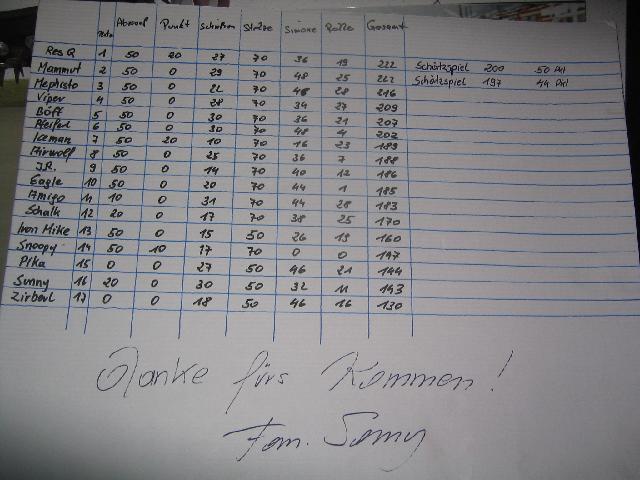 Punkt Simone Rolle Gesamt
Res Q 1 50 20 27 70 36 19 222 Schätzspiel 200 50 Pkt
Mammut 2 50 0 29 70 48 25 222 Schätzspiel 197 44 Pkt
Mephisto 3 50 0 22 70 46 28 216
Viper 4 50 0 28 70 34 27 209
Böff 5 50 0 30 70 36 21 207
Pfeiferl 6 50 0 30 70 48 4 202
Iceman 7 50 20 10 70 16 23 189
Airwolf 8 50 0 25 70 36 7 188
J.R. 9 50 0 14 70 40 12 186
Eagle 10 50 0 20 70 44 1 185
Amigo 11 10 0 31 70 44 28 183
Schalk 12 20 0 17 70 38 25 170
Iron Mike 13 50 0 15 50 26 19 160
Snoopy 14 50 10 17 70 0 0 147
Pika 15 0 0 27 50 46 21 144
Sunny 16 20 0 30 50 32 11 143
17 0 0 18 50 46 16 130
Danke fürs Kommen!
Fam. Sunny